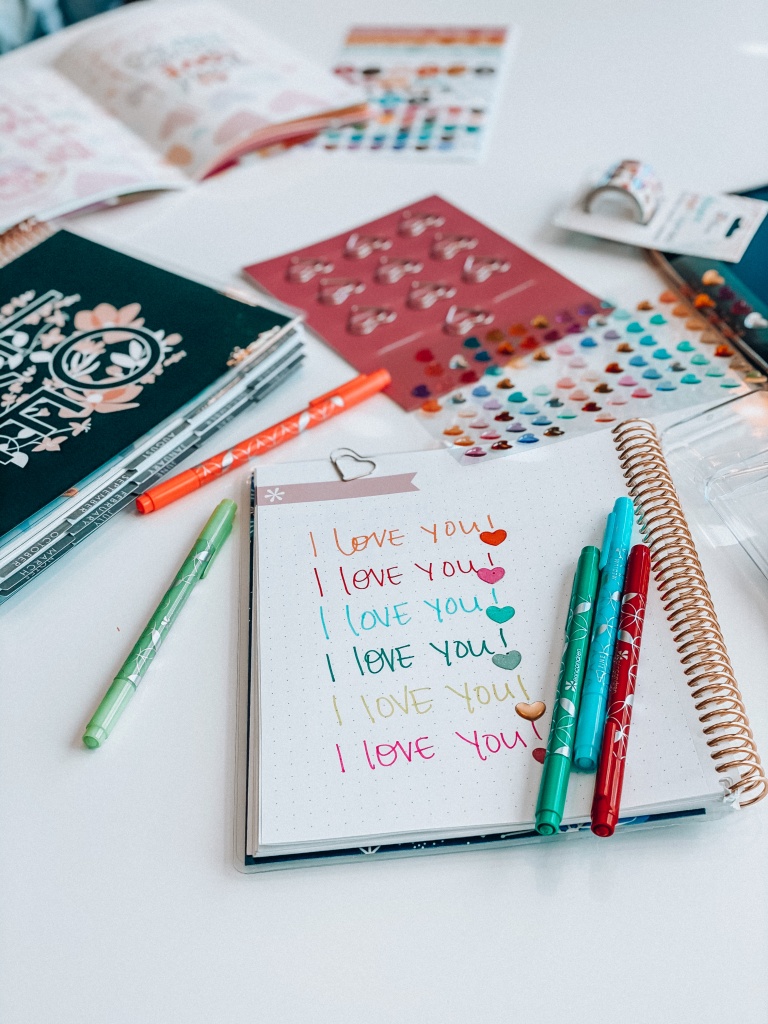 I LOVE YOU!
I LOVE YOU!
I LOVE YOU!
I LOVE YOU!
I LOVE YOU!
I LOVE YOU!
AUGUST
SEPTEMBER
FEBRUARY
OCTOBER
MARCH